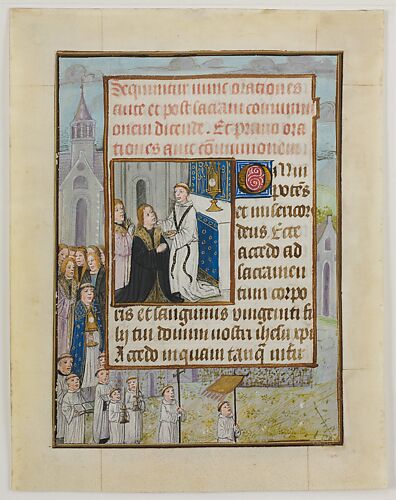 Sequuntur nunc orationes
ante et post sacram commu̅i
onem dicende. Et primo ora
tiones ante co̅munionem
OMni
pote̅s
et misericor
deus Ecce
accedo ad
sacramen
tum corpo
ris et sanguinis unigeniti fi
lij tui domini nostri ihesu xpi
Accedo inquam tanq̅ infir